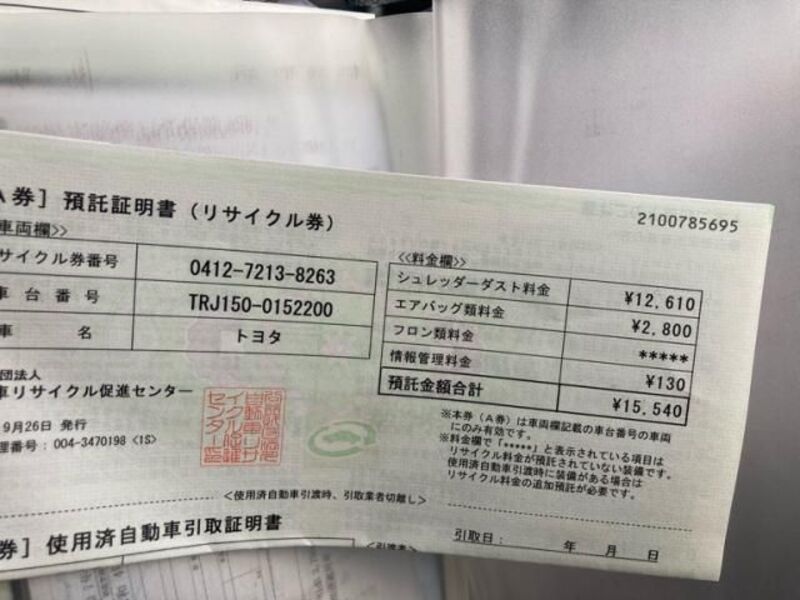 A券］預託証明書（リサイクル券）
2100785695
車両欄>>
サイクル券番号 0412-7213-8263
車台番号 TRJ150-0152200
車名 トヨタ
<<料金欄>>
シュレッダーダスト料金 ¥12,610
エアバッグ類料金 ¥2,800
フロン類料金 *****
情報管理料金 ¥130
預託金額合計 ¥15,540
団法人
車リサイクル促進センター
9月26日 発行
理番号：004-3470198 <1S>
※本券（A券）は車両欄記載の車台番号の車両
にのみ有効です。
※料金欄で「*****」と表示されている項目は
リサイクル料金が預託されていない装備です。
使用済自動車引渡時に装備がある場合は
リサイクル料金の追加預託が必要です。
<使用済自動車引渡時、引取業者切離し>
券］使用済自動車引取証明書
引取日： 年 月 日
<引渡者>